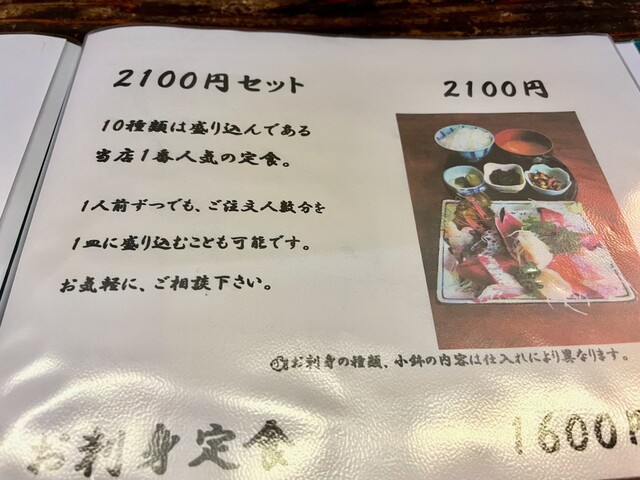 2100円セット
2100円
10種類は盛り込んである
当店1番人気の定食。
1人前ずつでも、ご注文人数分を
1皿に盛り込むことも可能です。
お気軽に、ご相談下さい。
お刺身の種類、小鉢の内容は仕入れにより異なります。
お刺身定食
1600円